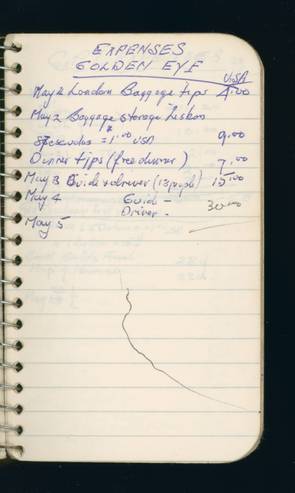 EXPENSES
GOLDEN EYE
USA
May 2 London Baggage tips 4.00
May 2 Baggage storage Lisbon
= 1.00 USA 9.00
Dinner tips (free dinner) 7.00
May 3 Guide & driver (13 people) 15.00
May 4 Guid -
Driver - 30.00
May 5